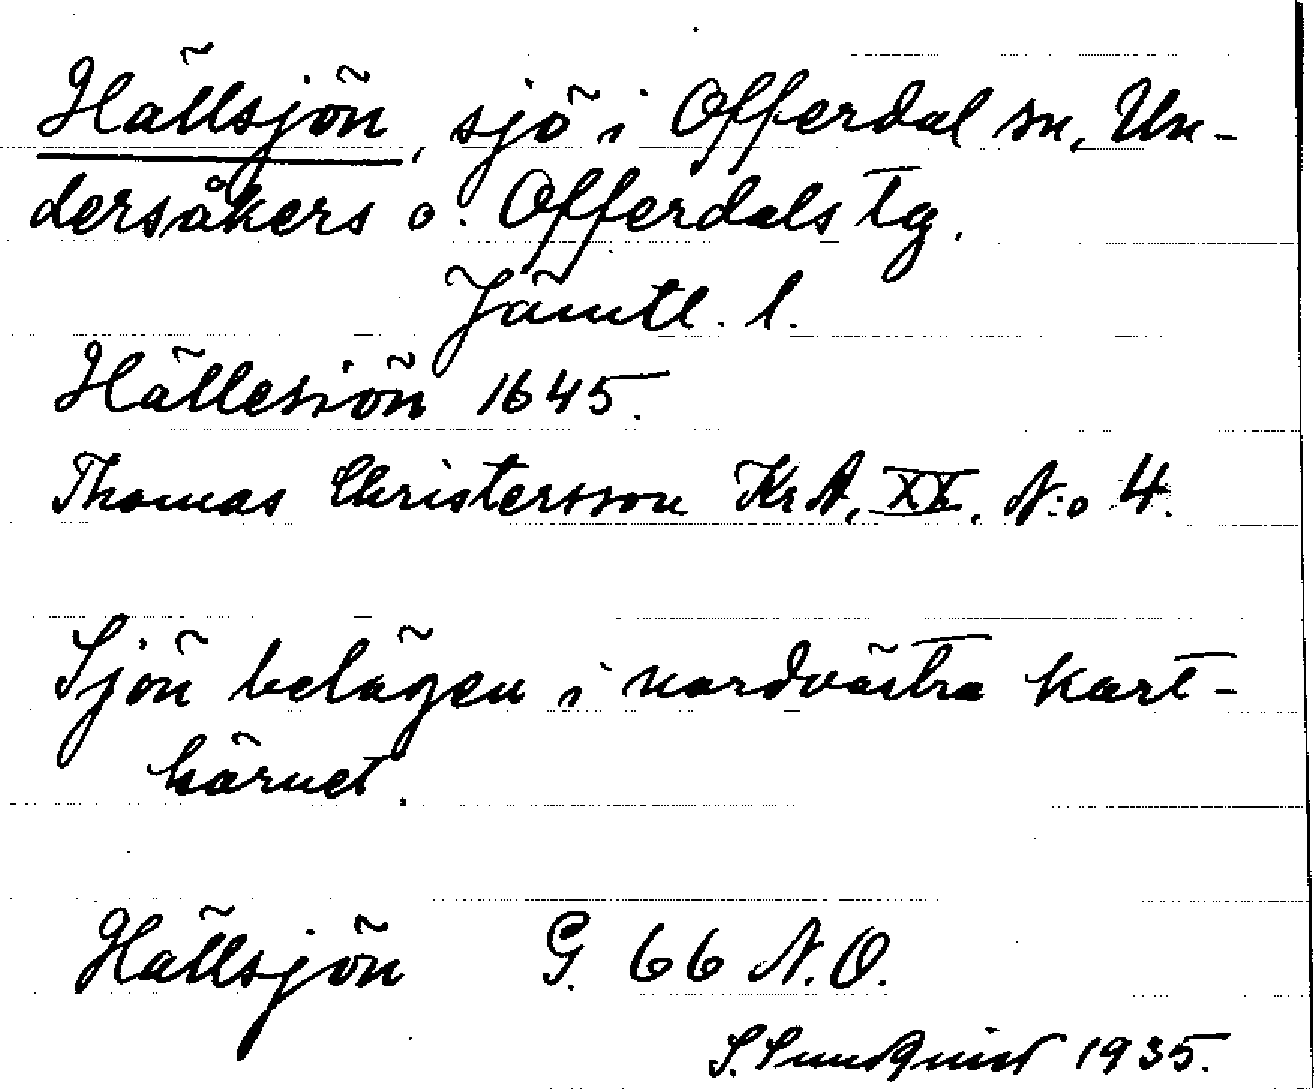 Hällsjön, sjö i Offerdal sn, Un-
dersåkers o. Offerdals tg.
Jämtl. l.
Hällesiön 1645.
Thomas Christersson KrA, XX, N:o 4.
Sjön belägen i nordvästra kart-
hörnet.
Hällsjön G. 66 N.O.
S. Sundquist 1935.